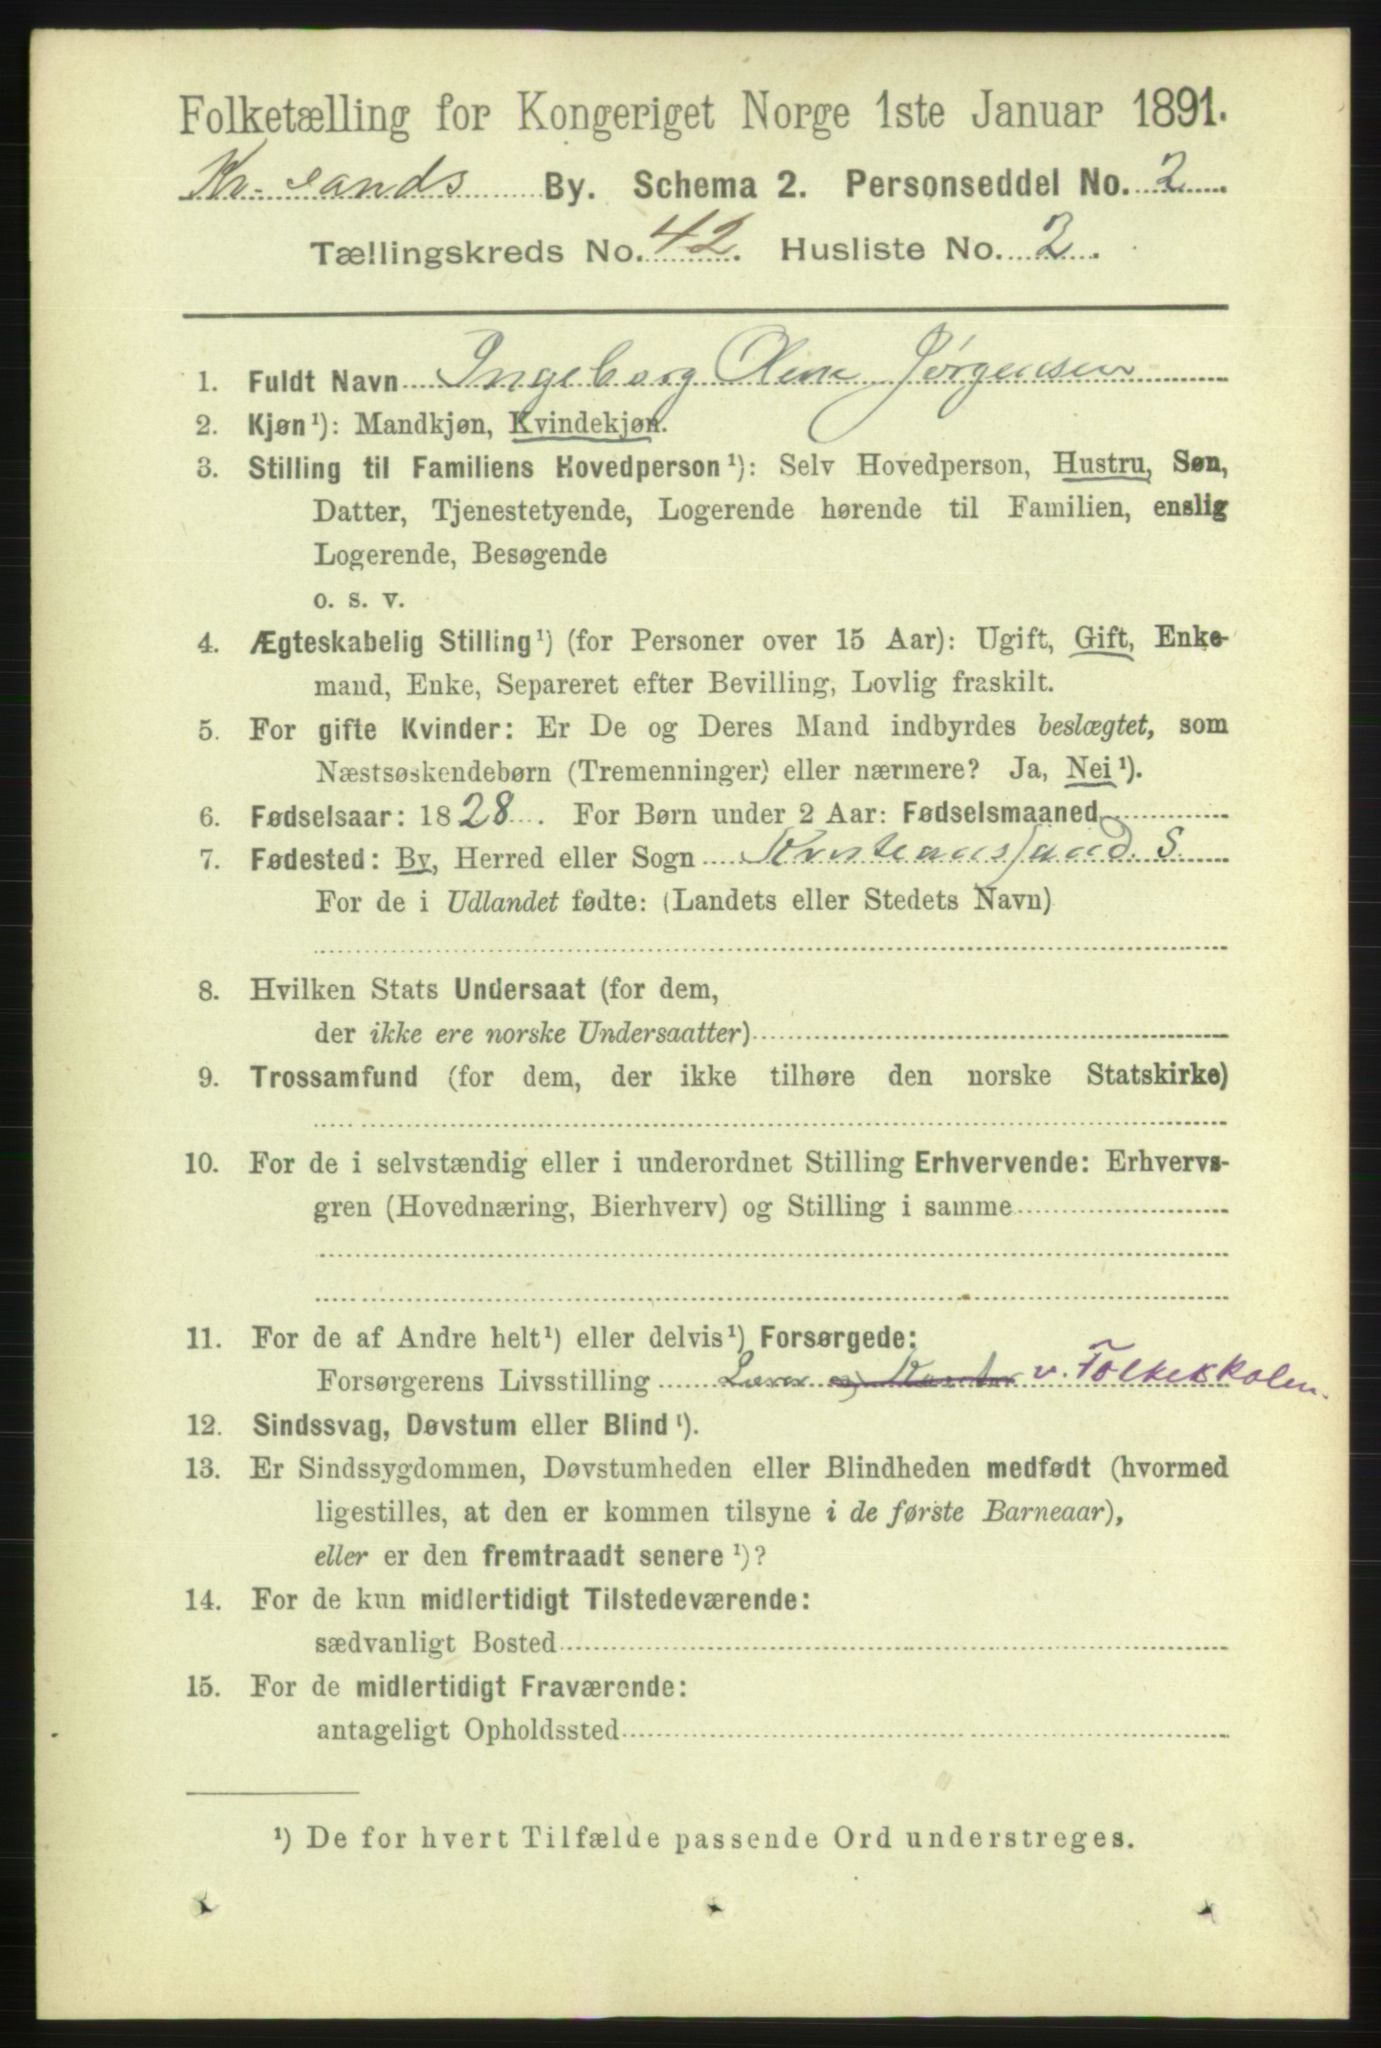 Folketælling for Kongeriget Norge 1ste Januar 1891.
Kr.sands By. Schema 2. Personseddel No. 2
Tællingskreds No. 42. Husliste No. 2.
1. Fuldt Navn Ingeborg Oline Jørgensen
2. Kjøn¹): Mandkjøn, Kvindekjøn.
3. Stilling til Familiens Hovedperson¹): Selv Hovedperson, Hustru, Søn,
Datter, Tjenestetyende, Logerende hørende til Familien, enslig
Logerende, Besøgende
o. s. v.
4. Ægteskabelig Stilling¹) (for Personer over 15 Aar): Ugift, Gift, Enke-
mand, Enke, Separeret efter Bevilling, Lovlig fraskilt.
5. For gifte Kvinder: Er De og Deres Mand indbyrdes beslægtet, som
Næstsøskendebørn (Tremenninger) eller nærmere? Ja, Nei¹).
6. Fødselsaar: 1828. For Børn under 2 Aar: Fødselsmaaned
7. Fødested: By, Herred eller Sogn Kristianssand. S.
For de i Udlandet fødte: (Landets eller Stedets Navn)
8. Hvilken Stats Undersaat (for dem,
der ikke ere norske Undersaatter)
9. Trossamfund (for dem, der ikke tilhøre den norske Statskirke)
10. For de i selvstændig eller i underordnet Stilling Erhvervende: Erhvervs-
gren (Hovednæring, Bierhverv) og Stilling i samme
11. For de af Andre helt¹) eller delvis¹) Forsørgede:
Forsørgerens Livsstilling Lærer og Kantor v. Folkeskolen.
12. Sindssvag, Døvstum eller Blind¹).
13. Er Sindssygdommen, Døvstumheden eller Blindheden medfødt (hvormed
ligestilles, at den er kommen tilsyne i de første Barneaar),
eller er den fremtraadt senere¹)?
14. For de kun midlertidigt Tilstedeværende:
sædvanligt Bosted
15. For de midlertidigt Fraværende:
antageligt Opholdssted
¹) De for hvert Tilfælde passende Ord understreges.